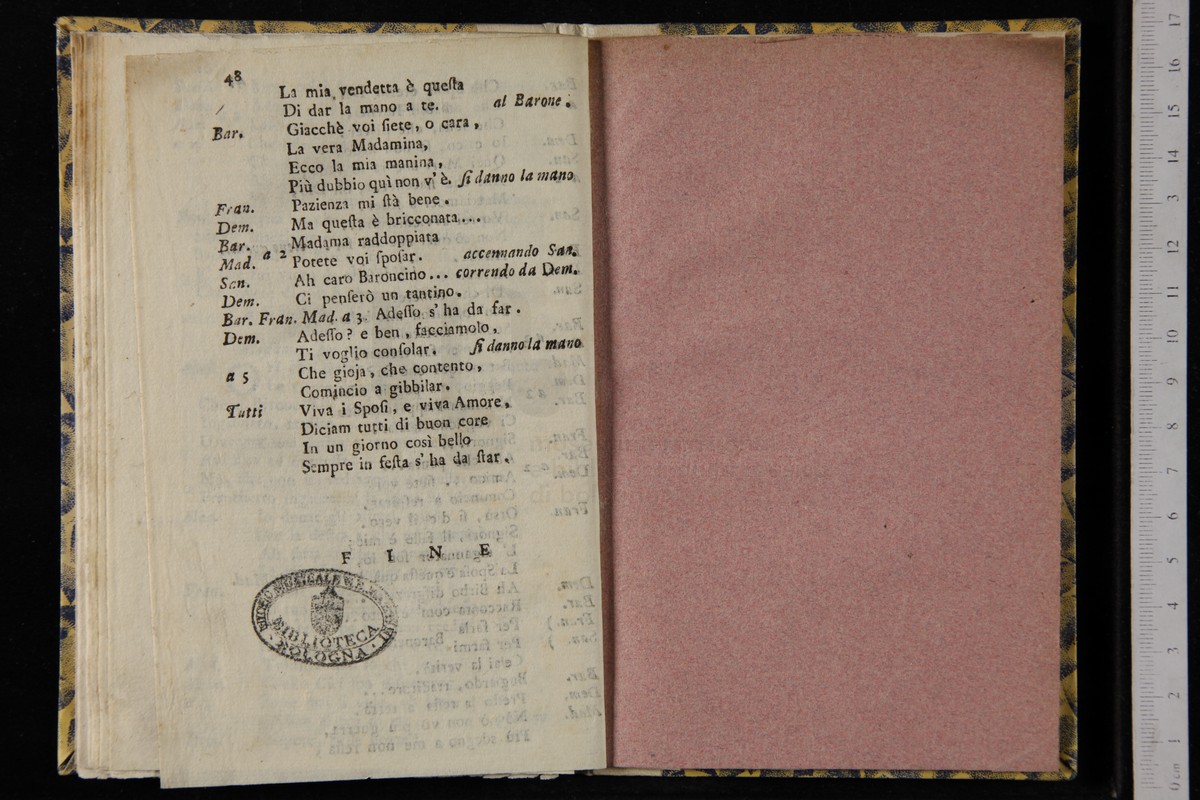 48
La mia vendetta è queſta
Di dar la mano a te. al Barone.
Bar. Giacchè voi ſiete, o cara,
La vera Madamina,
Ecco la mia manina,
Più dubbio quì non v' è. ſi danno la mano
Fran. Pazienza mi ſtà bene.
Dem. Ma queſta è bricconata...
Bar. Madama raddoppiata
Mad. a 2 Potete voi ſpoſar. accennando San.
San. Ah caro Baroncino... correndo da Dem.
Dem. Ci penſerò un tantino.
Bar. Fran. Mad. a 3. Adeſſo s' ha da far.
Dem. Adeſſo? e ben, facciamolo,
Ti voglio conſolar. ſi danno la mano
a 5 Che gioja, che contento,
Comincio a gibbilar.
Tutti Viva i Spoſi, e viva Amore,
Diciam tutti di buon core
In un giorno così bello
Sempre in feſta s' ha da ſtar.
F I N E
BIBLIOTECA
BOLOGNA